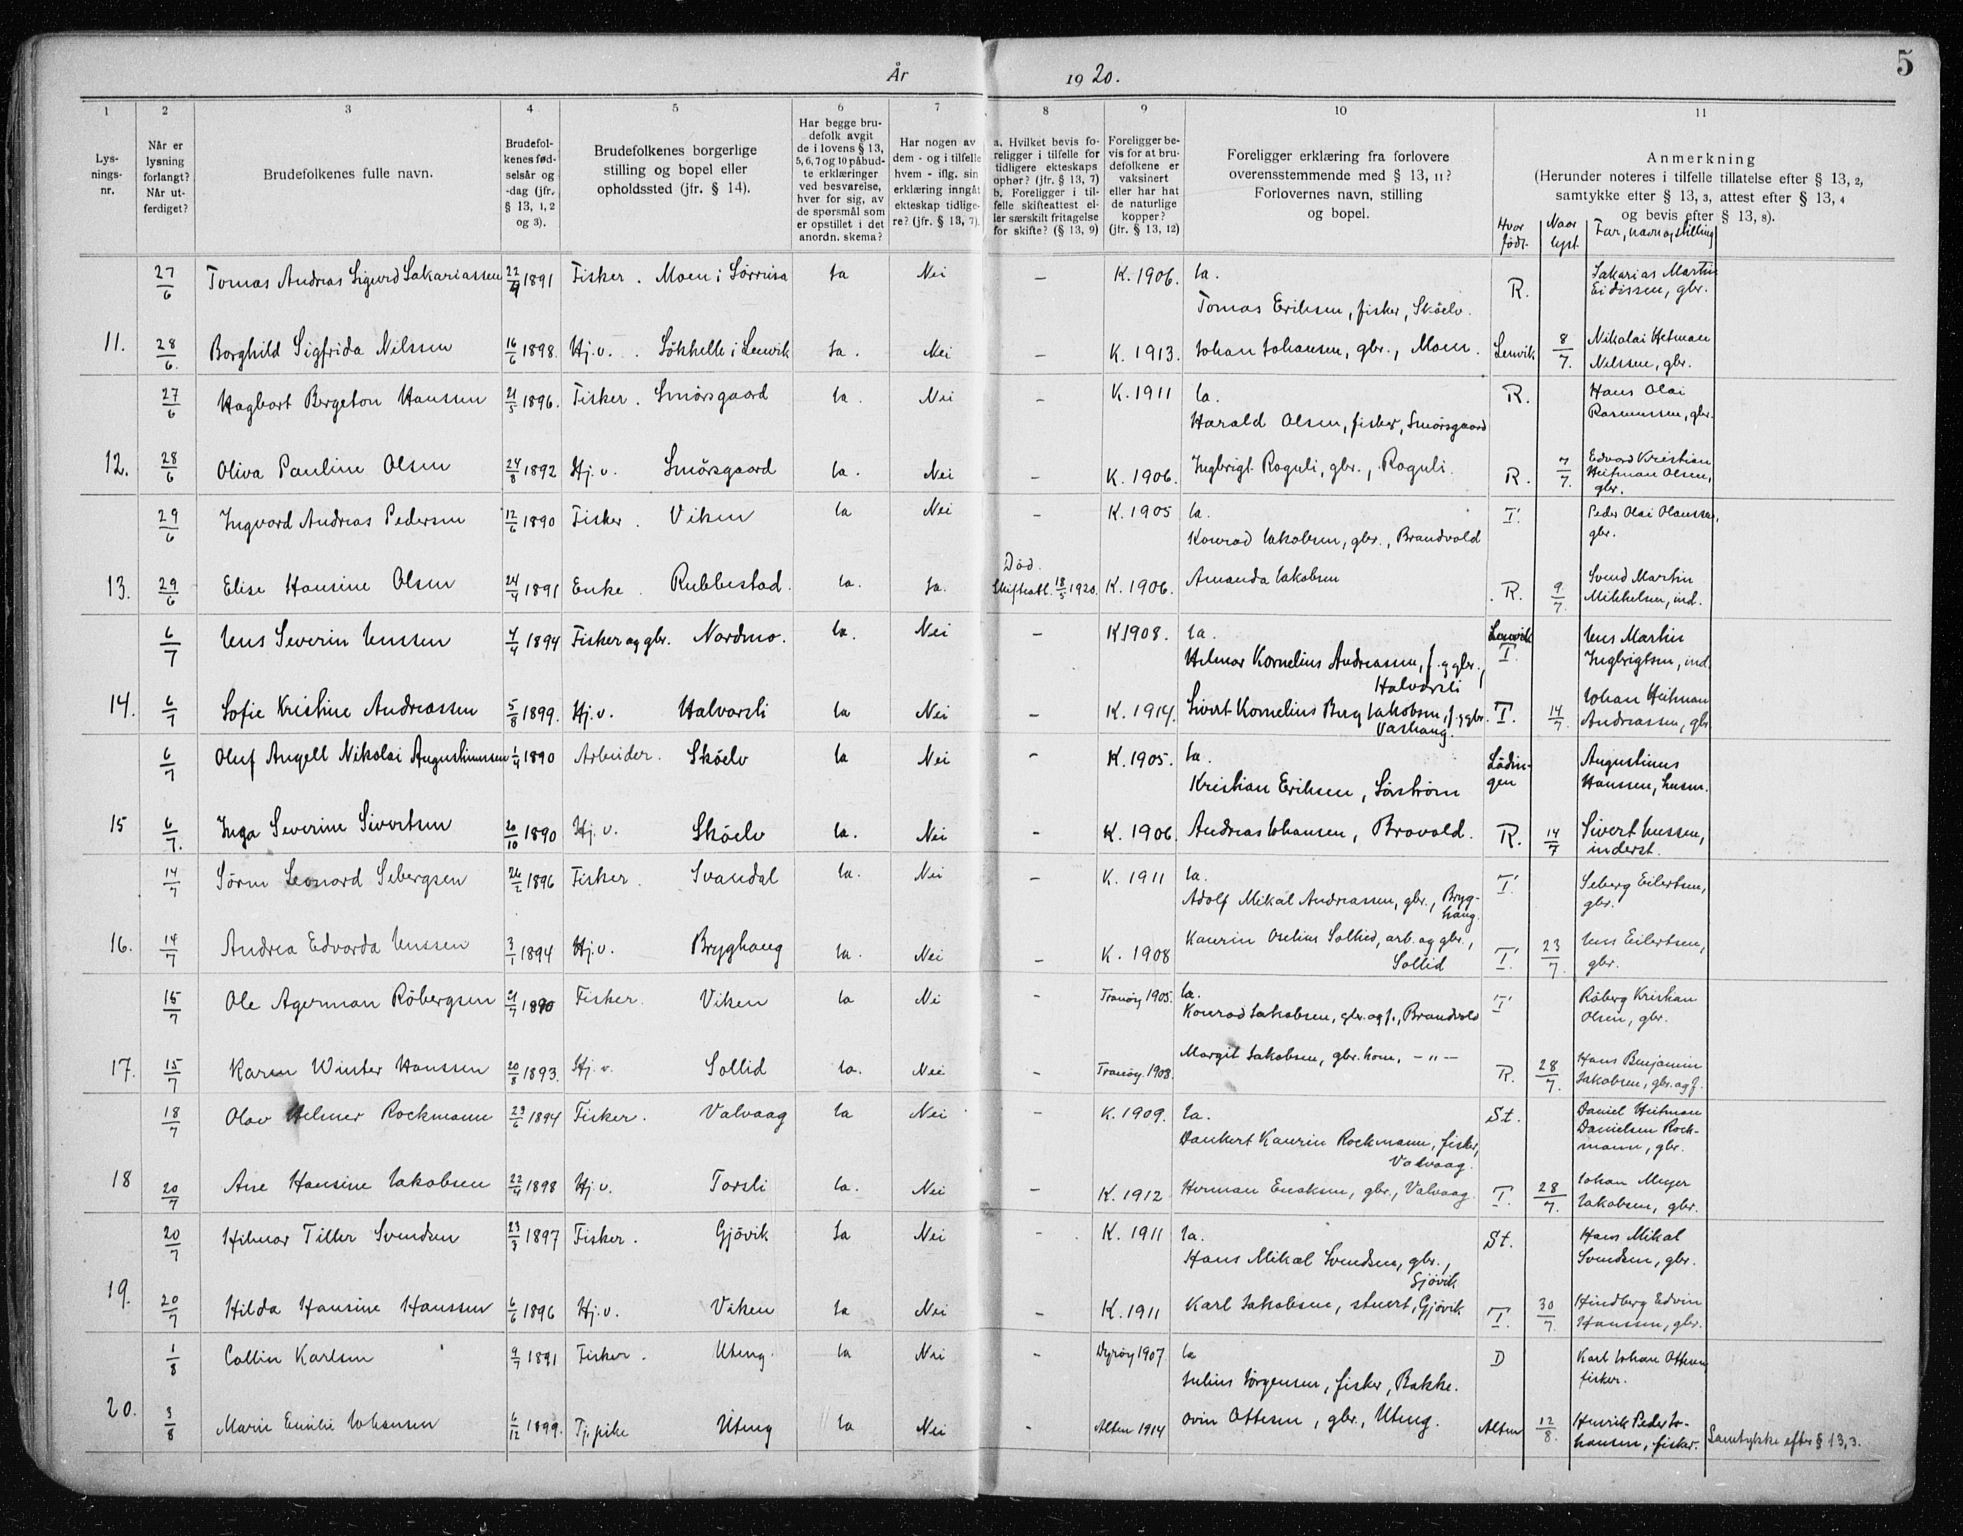 5
År 1920.
1 2 3 4 5 6 7 8 9 10 11
Lys-
nings-
nr.
Når er
lysning
forlangt?
Når ut-
ferdiget?
Brudefolkenes fulle navn.
Brudefol-
kenes fød-
selsår og
-dag (jfr.
§ 13, 1, 2
og 3).
Brudefolkenes borgerlige
stilling og bopel eller
opholdssted (jfr. § 14).
Har begge bru-
defolk avgit
de i lovens § 13,
5, 6, 7 og 10 påbud-
te erklæringer
ved besvarelse,
hver for sig, av
de spørsmål som
er opstillet i det
anordn. skema?
Har nogen av
dem - og i tilfelle
hvem - iflg. sin
erklæring inngått
ekteskap tidlige-
re? (jfr. § 13, 7).
a. Hvilket bevis fo-
religger i tilfelle for
tidligere ekteskaps
ophør? (jfr. § 13, 7)
b. Foreligger i til-
felle skifteattest el-
ler særskilt fritagelse
for skifte? (§ 13, 9)
Foreligger be-
vis for at bru-
defolkene er
vaksinert
eller har hat
de naturlige
kopper?
(jfr. § 13, 12)
Foreligger erklæring fra forlovere
overensstemmende med § 13, 11?
Forlovernes navn, stilling
og bopel.
Anmerkning
(Herunder noteres i tilfelle tillatelse efter § 13, 2,
samtykke efter § 13, 3, attest efter § 13, 4
og bevis efter § 13, 8).
Hvor født. Naar lyst. Far, navn og stilling
27/6 Tomas Andreas Sigurd Sakariassen 22/9 1891 Fisker. Moen i Sørreisa Ja Nei – K. 1906. Ja. R. Sakarias Martin
Tomas Eriksen, fisker, Skøelv. Eidissen, gbr.
11. 28/6. Borghild Sigfrida Nilssen 16/6 1898. Hj.v. Løkhelle i Lenvik Ja. Nei – K. 1913. Johan Johansen, gbr., Moen. Lenvik 8/7. Nikolai Hetman
Nilssen, gbr.
27/6 Hagbart Bergeton Hanssen 21/5 1896. Fisker. Smørsgaard Ja. Nei – K. 1911 Ja. R. Hans Olai
Harald Olsen, fisker, Smørsgaard Rasmussen, gbr.
12. 28/6 Oliva Pauline Olsen 24/8 1892 Hj.v. Smørsgaard Ja. Nei – K. 1906. Ingbrigt Roguli, gbr., Roguli. R. 7/7. Edvard Kristian
Heitman Olsen,
gbr.
29/6 Ingvard Andreas Pedersen 12/6 1890 Fisker. Viken Ja Nei – K. 1905 Ja. T. Peder Olai Olaussen,
Konrad Jakobsen, gbr., Brandvold gbr.
Død.
13. 29/6 Elise Hansine Olsen 24/4 1891 Enke Rubbestad. Ja. Ja. Skifteatt. 18/5 1920. K. 1906. Amanda Jakobsen R. 9/7. Svend Martin
Mikkelsen, ind.
6/7 Jens Severin Jenssen 4/4 1894 Fisker og gbr. Nordmo. Ja. Nei – K 1908. Ja. Lenvik T. Jens Martin
Helmer Kornelius Andreassen, f. og gbr., Ingbrigtsen, ind.
Halvarsli
14. 6/7 Sofie Kristine Andreassen 5/8 1899. Hj.v. Halvarsli Ja Nei – K. 1914. Sivert Kornelius Berg Jakobsen, f. og gbr. T. 14/7. Johan Heitman
Vashaug. Andreassen, gbr
6/7 Oluf Angell Nikolai Augustinussen 1/4 1890 Arbeider. Skøelv Ja Nei – K. 1905. Ja. Lødin- Augustinus
Kristian Eriksen, Sørstrøm gen Hanssen, husm.
15 6/7. Inga Severine Sivertsen 20/10 1890 Hj.v. Skøelv Ja. Nei – K. 1906. Andreas Johansen, Brovold. R. 14/7 Sivert Jenssen,
inderst.
14/7 Sørm Leonard Sebergsen 26/2 1896 Fisker. Svandal Ja. Nei – K. 1911 Ja. T. Seberg Eilertsen,
Adolf Mikal Andreassen, gbr., Bryg- gbr.
haug.
16. 14/7 Andrea Edvarda Jenssen 3/1 1894 Hj.v. Bryghaug Ja. Nei – K. 1908 Kaurin Oselius Sollied, arb. og gbr., T. 23/7. Jens Eilertsen,
Sollid gbr.
15/7 Ole Agerman Røbergsen 21/7 1890 Fisker. Viken Ja Nei – Tranøy 1905. Ja. T Røberg Kristian
Konrad Jakobsen, gbr. og f., Brandvold Olsen, gbr.
17. 15/7 Karen Winter Hanssen 20/8 1893. Hj.v. Sollid Ja. Nei – Tranøy 1908. Margit Jakobsen, gbr. kone, –"– R. 28/7. Hans Benjamin
Jakobsen, gbr. og f.
18/7 Olav Helmer Rockmann 23/6 1894 Fisker. Valvaag Ja Nei – K. 1909. Ja. St. Daniel Heitman
Dankert Kaurin Rockmann, fisker, Danielsen Rock-
Valvaag. mann, gbr.
18 20/7 Ane Hansine Jakobsen 22/4 1898 Hj.v. Torsli Ja. Nei – K. 1912 Herman Enoksen, gbr., Valvaag. T 28/7. Johan Meyer
Jakobsen, gbr.
20/7 Hilmar Tiller Svendsen 23/3 1897 Fisker. Gjøvik Ja Nei – K. 1911 Ja. St. Hans Mikal
Hans Mikal Svendsen, gbr., Svendsen, gbr.
Gjøvik
19. 20/7 Hilda Hansine Hanssen 6/6 1896 Hj.v. Viken Ja Nei – K. 1911 Karl Jakobsen, stuert, Gjøvik T. 30/7. Hindberg Edvin
Hanssen, gbr.
1/8 Collin Karlsen 9/7 1891 Fisker. Uteng. Ja Nei – Dyrøy 1907 Ja D Karl Johan Ottesen
Julius Jørgensen, fisker, Bakke. fisker.
20. 3/8 Marie Emilie Johansen 6/12 1899. Tj. pike Uteng Ja Nei – Alten 1914 Ovin Ottesen, gbr., Uteng. Alten 12/8. Henrik Peder Jo-
hansen, fisker. Samtykke efter § 13, 3.